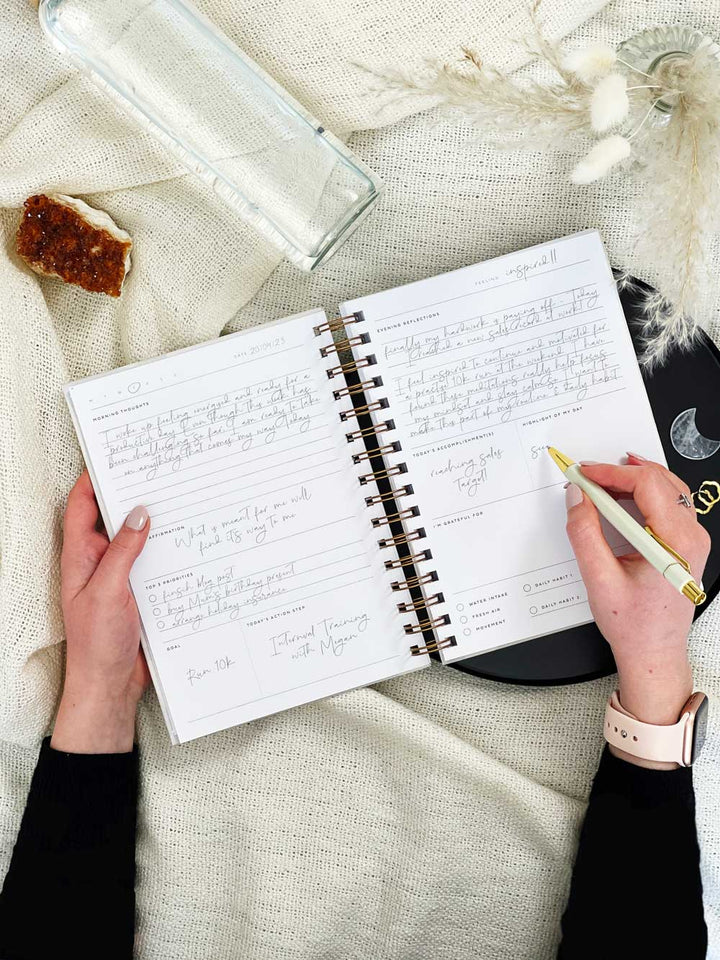 M T W T F S S
DATE 20/04/23
MORNING THOUGHTS
I woke up feeling energised and ready for a
productive day. Even though this week has
been challenging so far, I am ready to take
on anything that comes my way today
AFFIRMATION
What is meant for me will
find it's way to me
TOP 3 PRIORITIES
finish blog post
buy Mum's birthday present
arrange holiday insurance
GOAL
Run 10k
TODAY'S ACTION STEP
Interval Training
with Megan
FEELING inspired!!
EVENING REFLECTIONS
Finally my hardwork is paying off. Today
I reached a new sales record at work!
I feel inspired to continue and motivated for
a practice 10k run at the weekend. I have
found these meditations really help focus
my mindset and stay calm, so I want to
make this part of my routine & daily habit
TODAY'S ACCOMPLISHMENT(S)
reaching sales
target!
HIGHLIGHT OF MY DAY
I'M GRATEFUL FOR
WATER INTAKE
FRESH AIR
MOVEMENT
DAILY HABIT 1
DAILY HABIT 2